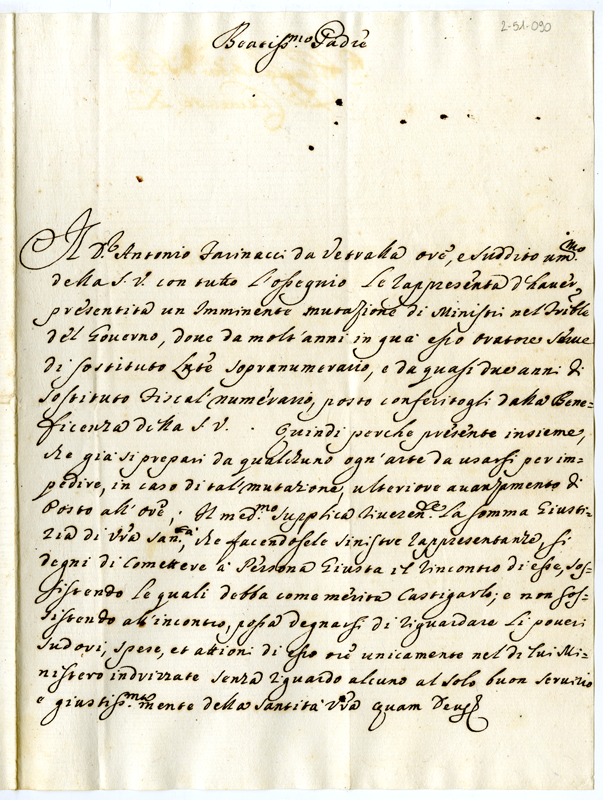 2-51-090
Beatiss.mo Padre
Il D.r Antonio Farinacci da Vetralla ore, e suddito um.mo
della S. V. con tutto l'ossequio Le rappresenta d'haver
presentita un Imminente mutazione di Ministri nel Trible
del Governo, dove da molt'anni in quà esso Oratore serve
di sostituto Lgte sopranumerario, e da quasi due anni di
sostituto Fiscal numerario, posto conferitogli dalla Bene=
ficenza della S. V. . Quindi perche presente insieme,
che già si prepari da qualcuno ogn'arte da usarsi per im=
pedire, in caso di tal mutazione, ulteriore avanzamento di
Posto all'ore; Il med.mo supplica riveren.te La somma Giusti=
zia di V'ra San.tà, che facendosele sinistre rappresentanze, si
degni di Comettere à Persona Giusta il rincontro di esse, sos=
sistendo le quali debba come merita Castigarlo; e non sos=
sistendo all'incontro, possa degnarsi di riguardare Li poveri
sudori, spese, et attioni di esso ore unicamente nel di lui Mi=
nistero indrizzate senza riguardo alcuno al solo buon servizio
e giustiss.mo mente della Santità V'ra quam Deus